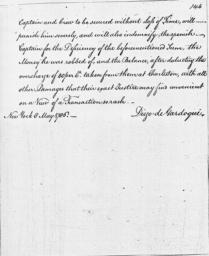 144
Captain and Crew to be secured without Loss of Time, will
punish him severely, and will also indemnify the Spanish
Captain for the Deficiency of the beforementioned Time, the
Money he was robbed of, and the Balance, after deducting the
overcharge of taken from them at Charleston, with all
other Damages that their exact Justice may find convenient
on a View of a Transaction so rash.
New York 6 May
Diego de Gardoqui